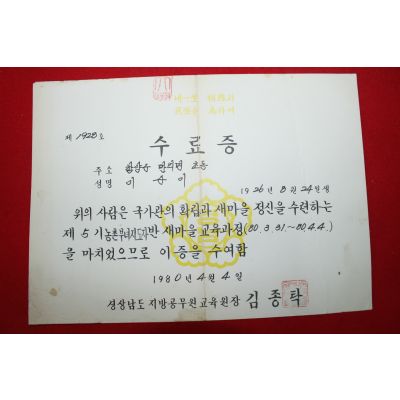 제 1928 호
수 료 증
주소
성명 이 순 이
1926년 8월 24일생
위의 사람은 국가관의 확립과 새마을 정신을 수련하는
제 5 기 농촌부녀지도자반 새마을 교육과정(80. 3. 31.~80. 4. 4.)
을 마치었으므로 이 증을 수여함
1980년 4월 4일
경상남도 지방공무원교육원장 김 종 탁